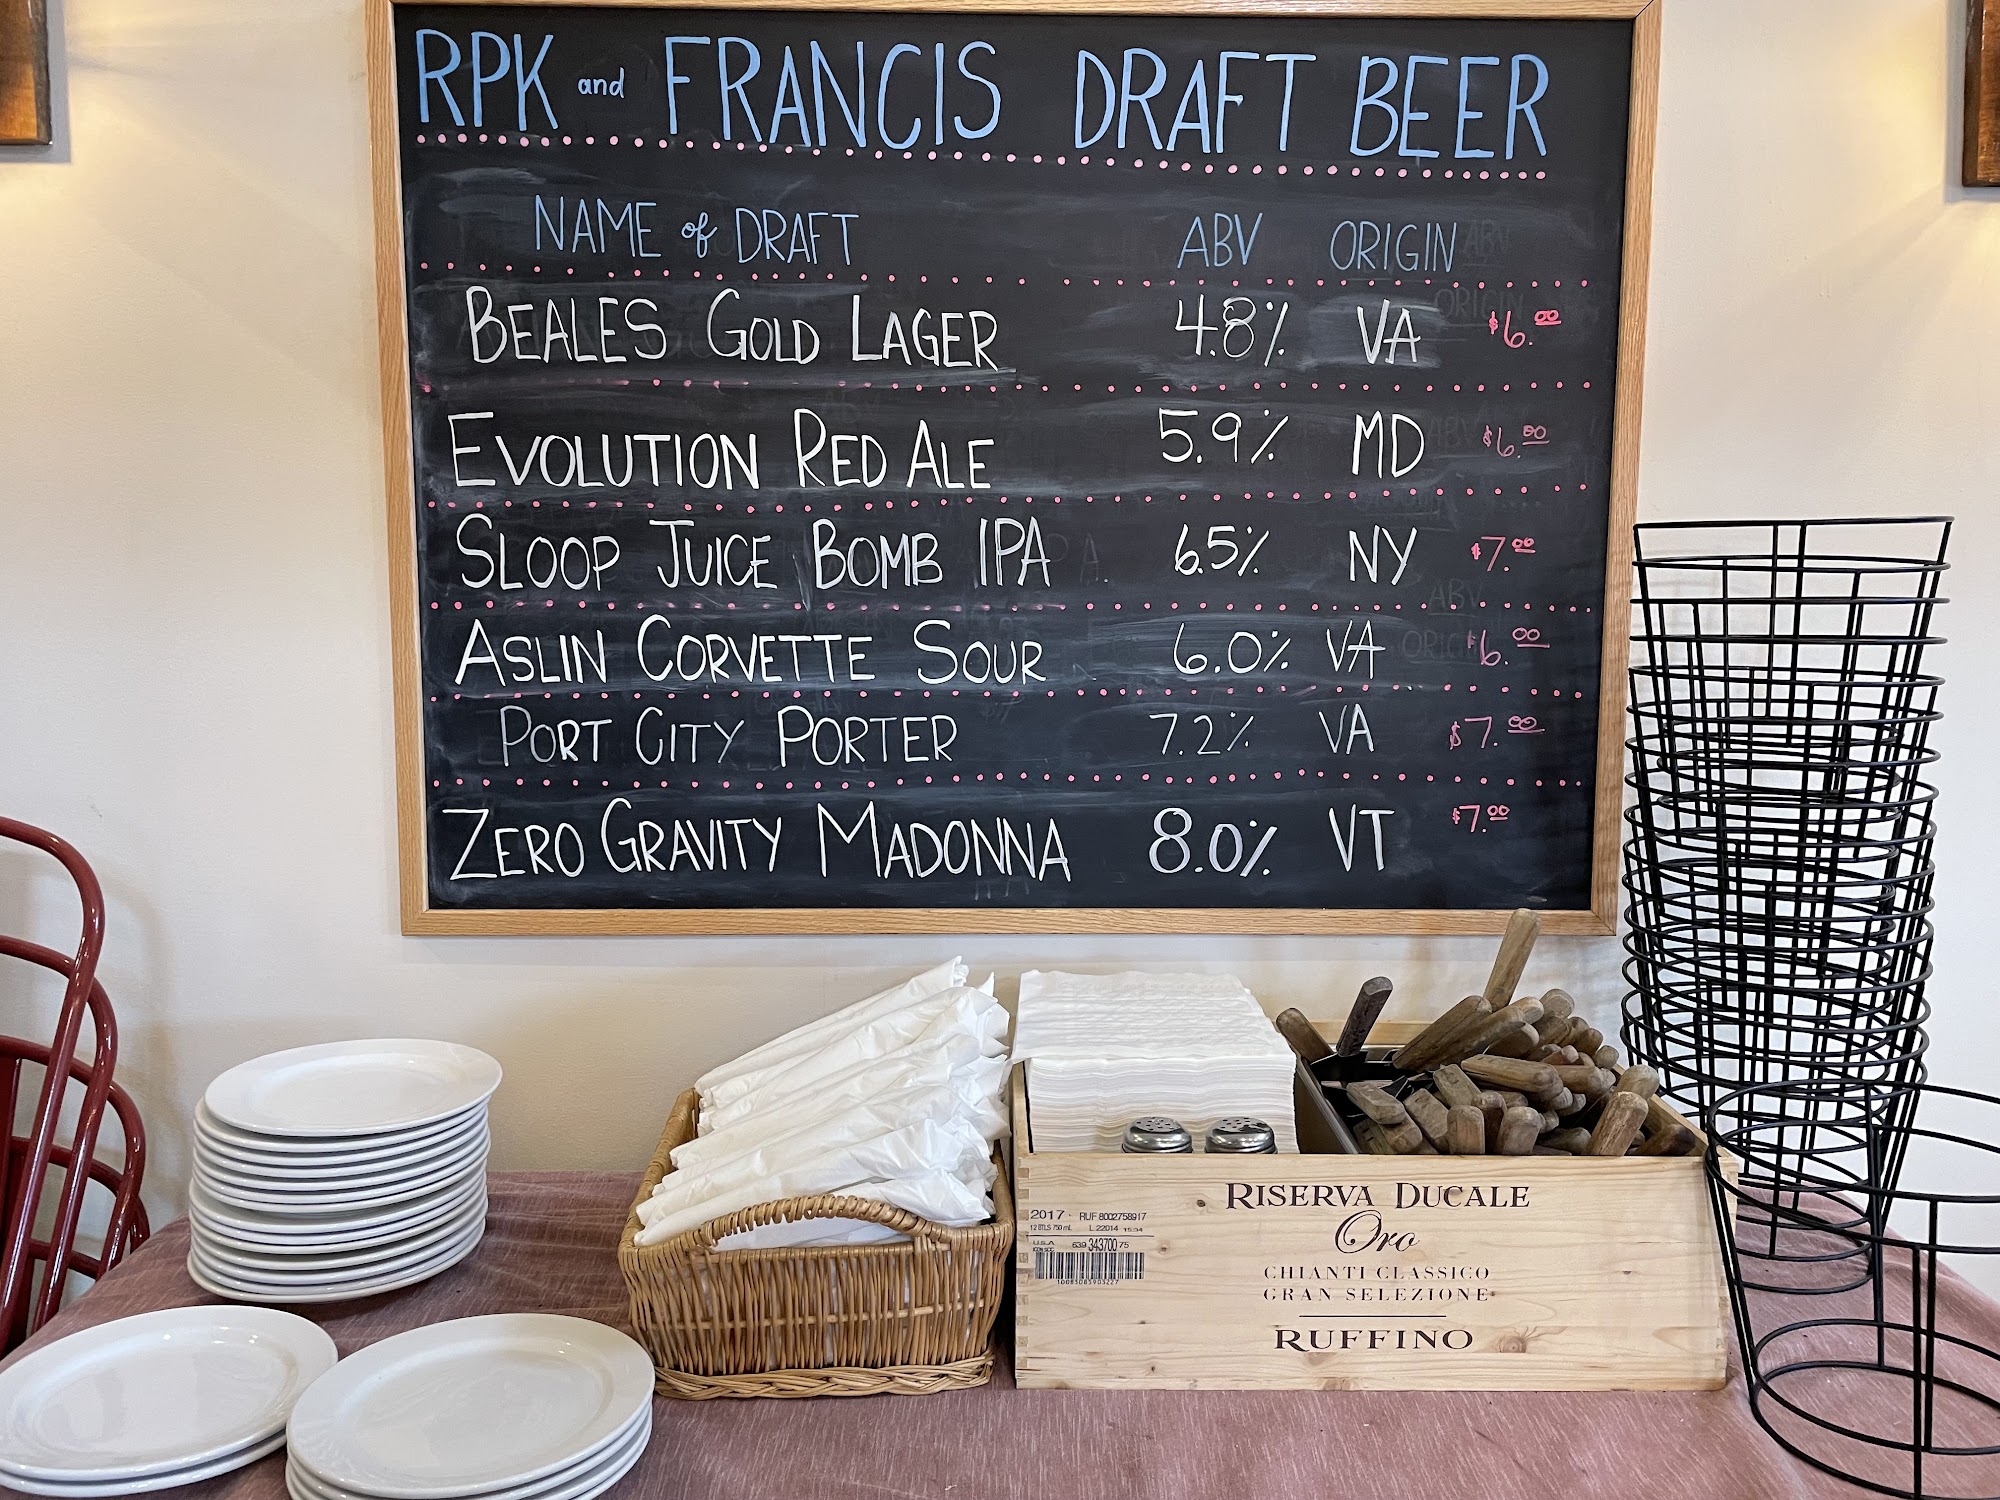 RPK and FRANCIS DRAFT BEER
NAME of DRAFT ABV ORIGIN
BEALES GOLD LAGER 4.8% VA $6.00
EVOLUTION RED ALE 5.9% MD $6.00
SLOOP JUICE BOMB IPA 6.5% NY $7.00
ASLIN CORVETTE SOUR 6.0% VA $6.00
PORT CITY PORTER 7.2% VA $7.00
ZERO GRAVITY MADONNA 8.0% VT $7.00
RISERVA DUCALE
Oro
CHIANTI CLASSICO
GRAN SELEZIONE
RUFFINO
2017 · RUF 8002758917
12 BTLS 750 mL L 22014 15:34
U.S.A. 639 343700 75
10083085903227